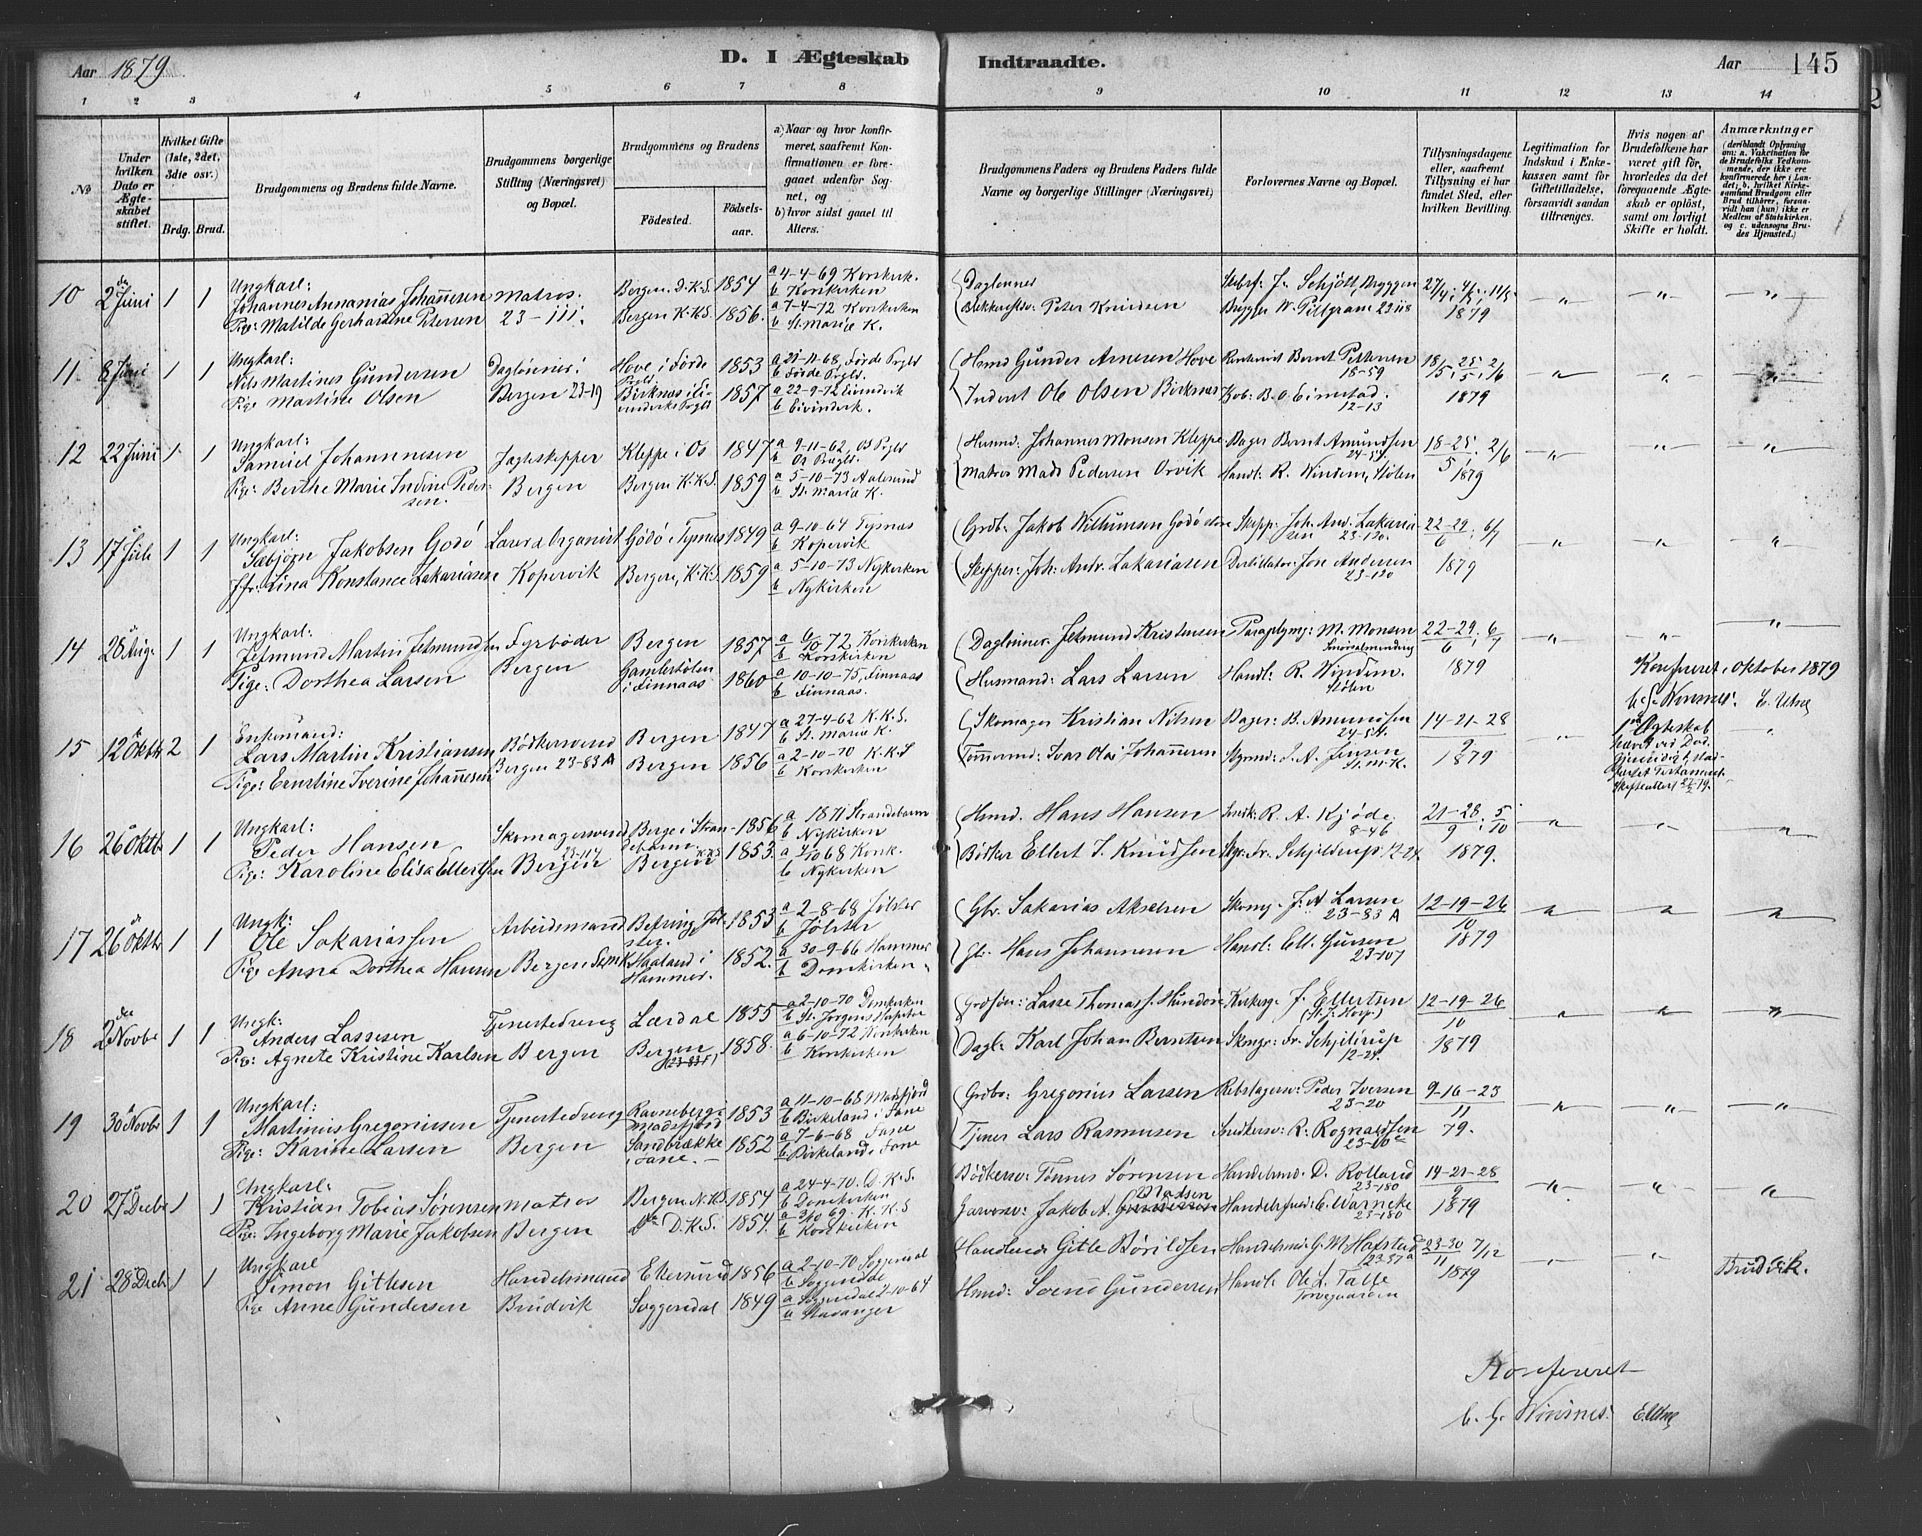 Aar 1879. D. I Ægteskab Indtraadte. Aar 145
1 2 3 4 5 6 7 8 9 10 11 12 13 14
№
Under hvilken Dato er Ægteskabet stiftet.
Hvilket Gifte (1ste, 2det, 3die osv.)
Brdg. Brud.
Brudgommens og Brudens fulde Navne.
Brudgommens borgerlige Stilling (Næringsvei) og Bopæl.
Brudgommens og Brudens
Fødested. Fødselsaar.
a) Naar og hvor konfirmeret, saafremt Konfirmationen er foregaaet udenfor Sognet, og
b) hvor sidst gaaet til Alters.
Brudgommens Faders og Brudens Faders fulde Navne og borgerlige Stillinger (Næringsvei)
Forlovernes Navne og Bopæl.
Tillysningsdagene eller, saafremt Tillysning ei har fundet Sted, efter hvilken Bevilling.
Legitimation for Indskud i Enkekassen samt for Giftetilladelse, forsaavidt saadan tiltrænges.
Hvis nogen af Brudefolkene har været gift før, hvorledes da det foregaaende Ægteskab er opløst, samt om lovligt Skifte er holdt.
Anmærkninger (deriblandt Oplysning om: a. Vakcination for de Brudefolks Vedkommende, der ikke ere konfirmerede her i Landet; b. hvilket Kirkesamfund Brudgom eller Brud tilhører, forsaavidt han (hun) ikke er Medlem af Statskirken, og c. udensogns Brudes Hjemsted.)
10 2 Juni 1 1 Ungkarl: Johannes Annanias Johannesen Matros. Bergen. D.K.S. 1854 a 4-4-69 Korskirk. b Korskirken Daglønner J. Schjött, Bryggen 27/4, 4/5, 11/5
Pige: Matilde Gerhardine Petersen 23-111. Bergen K.K.S. 1856. a 7-4-72 Korskirken b St. Marie K. Peter Knudsen Brygger W. Piltgram 23-118 1879
11 8 Juni 1 1 Ungkarl: Nils Martines Gundersen Daglønner: Hove i Førde Prgld. 1853 a 21-11-68, Førde Prgld b Førde Prgld. Hmd Gunder Arnesen Hove Bernt Petersen 18-59 18/5, 25/5, 2/6
Pige Martine Olsen Bergen 23-19 Birknes i Eivindviks Prgld 1857 a 22-9-72 Eivindvik b Eivindvik. Inderst Ole Olsen Birknes B. O. Eimstad. 12-13 1879
12 22 Juni 1 1 Ungkarl: Samuel Johannesen Jagteskipper Kleppe i Os 1847 a 9-11-62, Os Prgld b Os Prgld. Husmd: Johannes Monsen Kleppe Bager Bernt Amundsen 24-54 18-25/5, 2/6
Pige: Berthe Marie Indine Pedersen. Bergen Bergen K.K.S. 1859 a 5-10-73 Aalesund b St. Marie K. Matros Mads Pedersen Orvik Handl: R. Windem, Stølen 1879
13 17 Juli 1 1 Ungkarl: Sæbjørn Jakobsen Godø Lærer & Organist Gödö i Tysnæs 1849 a 9-10-64 Tysnæs b Kopervik Grdb. Jakob Willumsen Godø Skipp: Joh. And. Zakariasen 23-120. 22-29/6, 6/7
Jfr: Lina Konstance Zakariasen Kopervik Bergen, K.K.S. 1859 a 5-10-73 Nykirken b Nykirken Skipper: Joh: Andr. Zakariasen Destillatør: Jon Andersen 23-120 1879
14 28 Aug. 1 1 Ungkarl: Jetmund Martin Jetmundsen Fyrbøder Bergen 1857 a 6/10 72 Korskirken b Korskirken Daglönner Jetmund Kristensen Paraplymg: M. Monsen 22-29/6, 6/7
Pige: Dorthea Larsen Bergen Gamlestölen i Finnaas 1860 a 10-10-75, Finnaas b Finnaas. Husmand: Lars Larsen Handl: R. Windem. Stølen 1879
Konfereret i Oktober 1879
C. G. Wiesnes. E. Utne
15 12 Oktbr 2 1 Enkemand: Lars Martin Kristiansen Bödkersvend Bergen 1847 a 27-4-62 K.K.S. b St. Marie K. Skomager Kristian Nilsen Bager: B. Amundsen 24-54. 14-21-28/9
Pige: Ernstine Iverine Johannesen Bergen 23-83 A Bergen 1856 a 2-10-70 K.K.S b Korskirken Tømmermd: Ivar Olai Johannesen Styrmd: S. A. Jensen St. M. K. 1879
1ste Ægteskab hævet ved Død.
16 26 Oktbr 1 1 Ungkarl: Peder Hansen Skomagersvend Berge i Strandebarm 1856 a 1871 Strandebarm b Nykirken Hsmd. Hans Hansen Snedk: R. A. Kjøde, 8-46 21-28/9, 5/10
Pige: Karoline Elisa Ellertsen Bergen Bergen 1853. a 4/10 68 Korsk. b Nykirken Bödker Ellert J. Knudsen Skgr: Fr. Schjelderup 12-24 1879.
17 26 Oktbr 1 1 Ungk: Ole Sakariassen Arbeidsmand Befring Jølster. 1853 a 2-8-68 Jølster b Jølster Gbr. Sakarias Akselsen Skomg. J. A. Larsen 23-83 A 12-19-26/10
Pige Anna Dorthea Hansen Bergen Haaland i Hammer. 1852. a 30-9-66 Hammer b Domkirken Gbr. Hans Johannesen Handl: Ell. Gursen 23-107 1879
18 2 Novbr 1 1 Ungk: Anders Lassesen Tjenestedreng Lærdal 1855 a 2-10-70 Domkirken b St. Jørgens Hospital Grdfsør: Lasse Thomass. J. Ellertsen (St. J. Hosp.) 12-19-26/10
Pige: Agnete Kristine Karlsen Bergen Bergen (23-83 F) 1858. a 6-10-72 Korskirken b Korskirken Dagl: Karl Johan Berntsen Skmgr: Fr. Schjelderup 12-24. 1879
19 30 Novbr 1 1 Ungkarl: Martinus Gregoriusen Tjenestedreng Ravneberg i Masfjord 1853 a 11-10-68 Masfjord b Birkeland i Fane Grdbr. Gregorius Larsen Rebslagersv: Peder Iversen 23-20 9-16-23/11
Pige: Karine Larsen Bergen Sandbrække i Fane. 1852 a 7-6-68 Fane b. Birkeland i Fane Tjener Lars Rasmussen Snedkersv: R. Rognaldsen 79.
20 27 Decbr 1 1 Ungkarl: Kristian Tobias Sørensen Matros Bergen N.K.S. 1854 a 24-4-70. D.K.S. b Domkirken Bødkersv: Tønnes Sørensen Handelsmd. D. Rolland 23-180 14-21-28/9
Pige: Ingeborg Marie Jakobsen Bergen Do D.K.S. 1854. a 3/10 69. K.K.S b Korskirken Garversv: Jakob A. Madsen Handelsfuld: C. Warncke 23-180 1879
21 28 Decbr 1 1 Ungkarl Simon Gitlesen Handelsmand Ekersund 1856 a 2-10-70 Soggendal b Soggendal Handlende Gitle Børildsen Handelsmd: G. M. Hafstad 23-57 a 23-30/11 7/12
Pige Anne Gundersen Brudvik Soggendal 1849 a Soggendal 2-10-64 b Stavanger Hsmd: Svend Gundersen Handl: Ole L. Talle Torvegaarden 1879 Brudvik.
Konfereret
C. G. Wiesnes: E. Utne